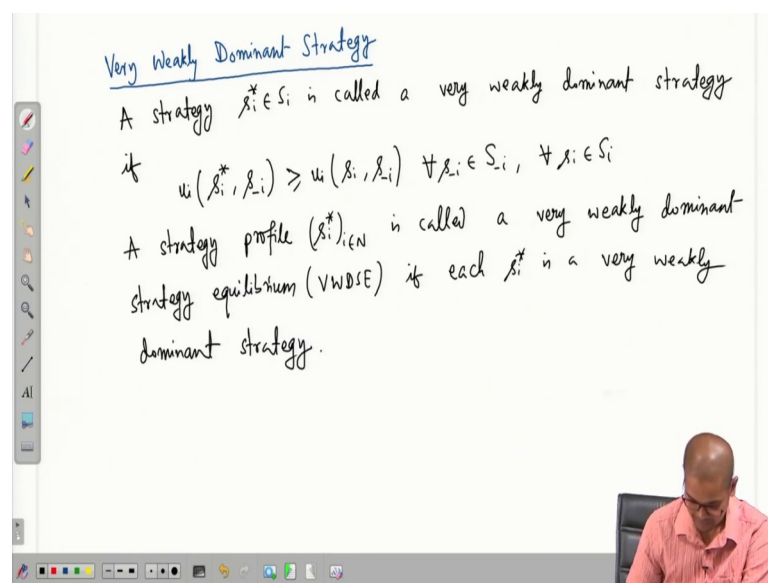 Very Weakly Dominant Strategy
A strategy s_i^* ∈ S_i is called a very weakly dominant strategy
if
u_i(s_i^*, s_-i) ⩾ u_i(s_i, s_-i) ∀ s_-i ∈ S_-i, ∀ s_i ∈ S_i
A strategy profile (s_i^*)_{i∈N} is called a very weakly dominant
strategy equilibrium (VWDSE) if each s_i^* is a very weakly
dominant strategy.
A